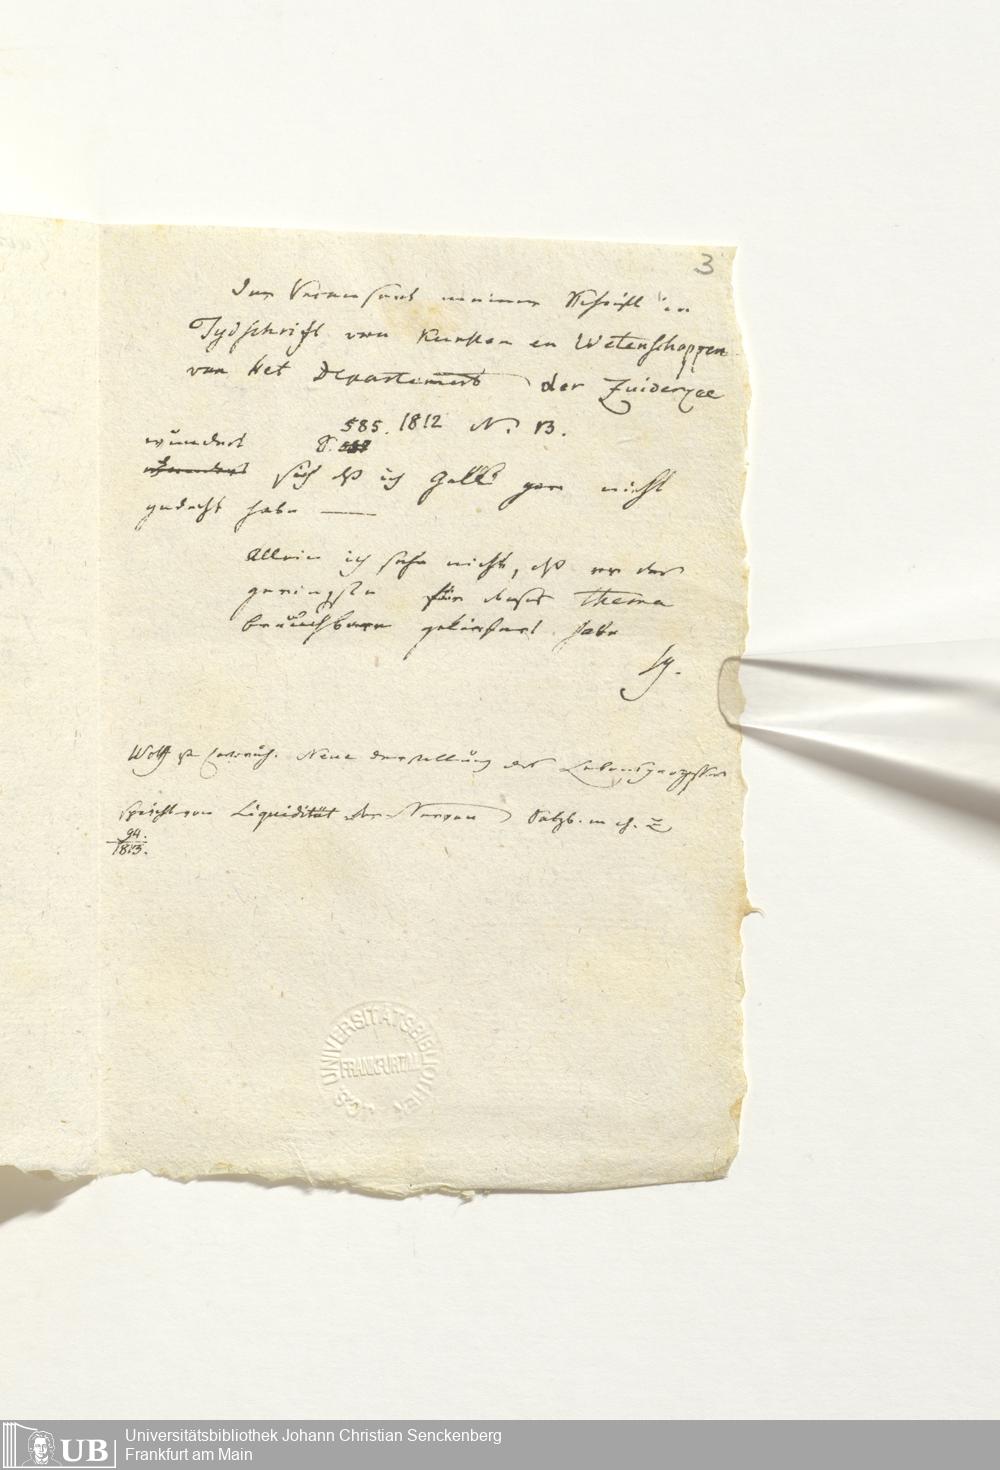 3
Der Recensent meiner Schrift in
Tydschrift van Kunsten en Wetenschappen
van het Departement der Zuiderzee
585. 1812 N. 13.
wundert S.
sich dß ich Gall gar nicht
gedacht habe —
Allein ich sehe nicht, dß er das
geringste für dieses Thema
brauchbare geliefert habe
Sg.
Wolf Neue Darstellung des Lebensprozesses
spricht von Liquidität der Nerven Salzb. m. ch. Z
94.
1813.
UNIVERSITÄTSBIBLIOTHEK
FRANKFURT/M.
UB
Universitätsbibliothek Johann Christian Senckenberg
Frankfurt am Main